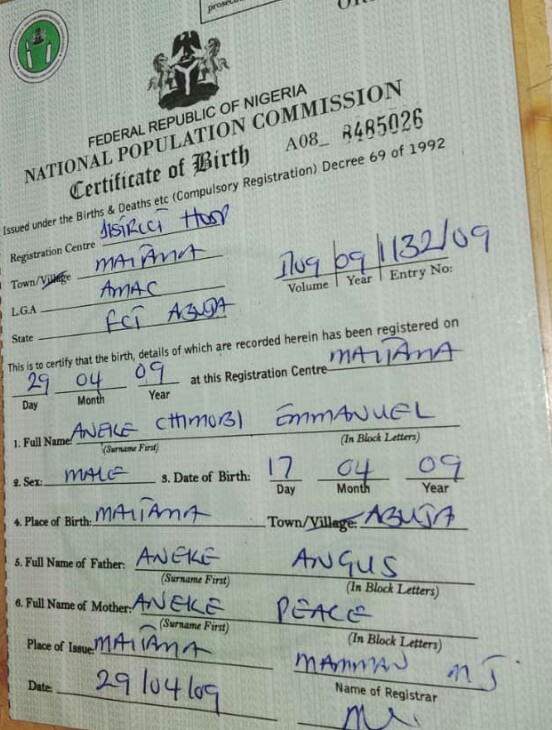 FEDERAL REPUBLIC OF NIGERIA
NATIONAL POPULATION COMMISSION
Certificate of Birth A08_ 8485026
Issued under the Births & Deaths etc (Compulsory Registration) Decree 69 of 1992
Registration Centre DISTRICT HOSP
Town/Village MAITAMA
L.G.A AMAC
State FCT ABUJA
09 1132/09
Volume Year Entry No:
This is to certify that the birth, details of which are recorded herein has been registered on
29 04 09 at this Registration Centre MAITAMA
Day Month Year
1. Full Name: ANEKE CHIMOBI EMMANUEL
(Surname First) (In Block Letters)
2. Sex: MALE 3. Date of Birth: 17 04 09
Day Month Year
4. Place of Birth: MAITAMA Town/Village: ABUJA
5. Full Name of Father: ANEKE ANGUS
(Surname First) (In Block Letters)
6. Full Name of Mother: ANEKE PEACE
(Surname First) (In Block Letters)
Place of Issue: MAITAMA MAMMAN M J
Name of Registrar
Date: 29/04/09